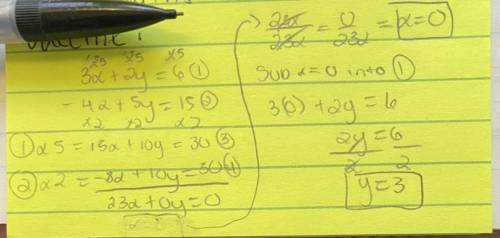 x5 x5 x5
3x + 2y = 6 ①
- 4x + 5y = 15 ②
x2 x2 x2
① x 5 = 15x + 10y = 30 ③
② x 2 = -8x + 10y = 30 ④
23x + 0y = 0
23x/23x = 0/23x = x = 0
Sub x = 0 into ①
3(0) + 2y = 6
2y = 6
2 2
y = 3